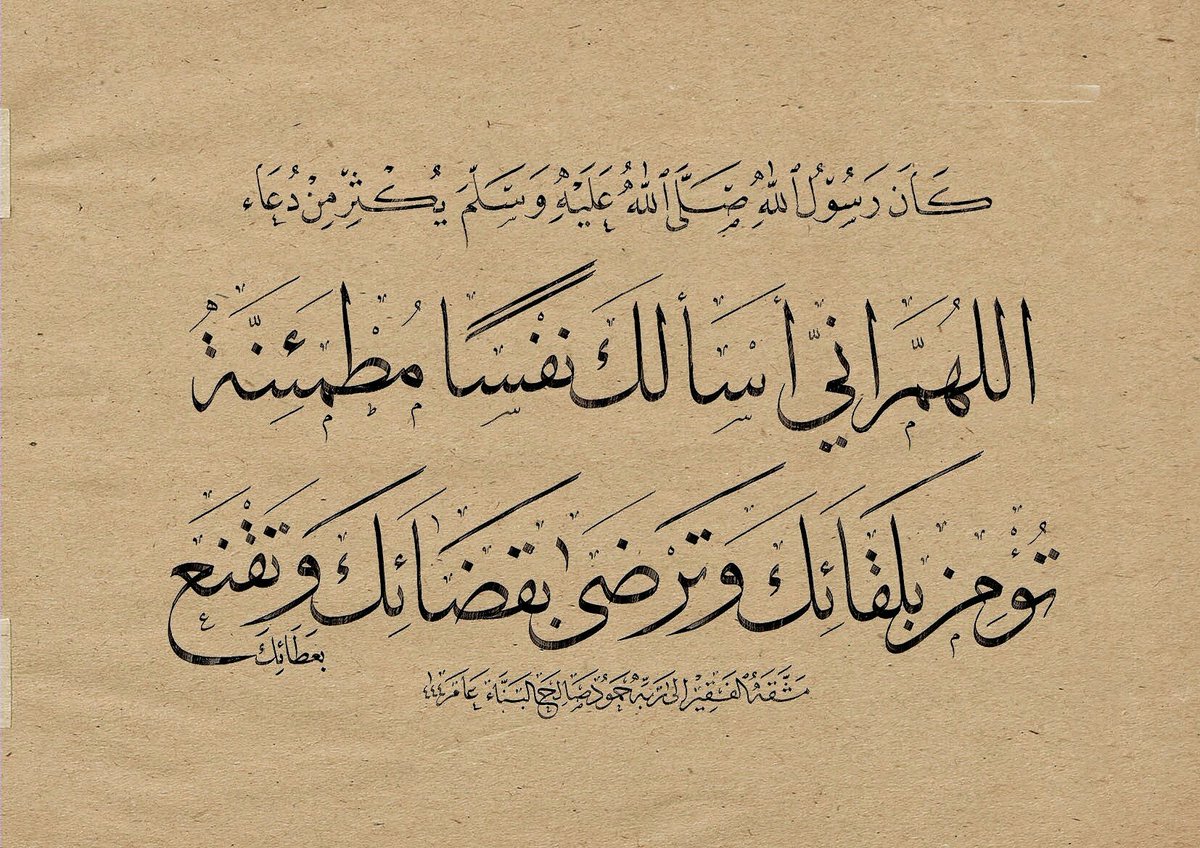 كَانَ رَسُوْلُ اللهِ صَلَّى اللهُ عَلَيْهِ وَسَلَّمَ يُكْثِرُ مِنْ دُعَاء
اللهُمَّ اني أسألك نفْسًا مُطْمَئِنَّةً
تُؤْمِن بلقَائِك وَتَرْضَى بقَضَائِك وَتَقْنَع
بعَطَائِكَ
مَشَّقَهُ الفَقِيْر الى رَبِّهِ حمُود صَالِح البَنَّاء عَامَ ١٤٤٤